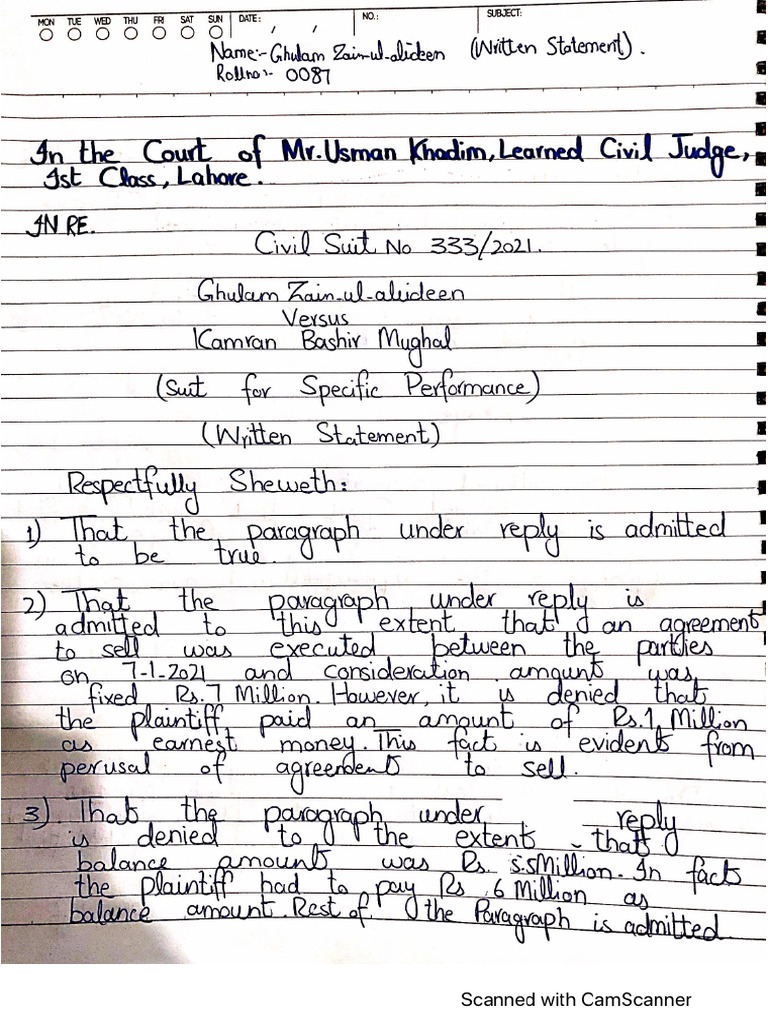 MON TUE WED THU FRI SAT SUN DATE: / / NO.: SUBJECT:
Name:- Ghulam Zain-ul-abideen (Written Statement).
Rollno:- 0087
In the Court of Mr. Usman Khadim, Learned Civil Judge,
1st Class, Lahore.
IN RE.
Civil Suit No 333/2021.
Ghulam Zain-ul-abideen
Versus
Kamran Bashir Mughal
(Suit for Specific Performance)
(Written Statement)
Respectfully Sheweth:
1) That the paragraph under reply is admitted
to be true.
2) That the paragraph under reply is
admitted to this extent that an agreement
to sell was executed between the parties
on 7-1-2021 and consideration amount was
fixed Rs. 7 Million. However, it is denied that
the plaintiff paid an amount of Rs. 1 Million
as earnest money. This fact is evidents from
perusal of agreements to sell.
3). That the paragraph under reply
is denied to the extents that
balance amounts was Rs. 5.5Million. In facts
the plaintiff had to pay Rs 6 Million as
balance amount. Rest of the Paragraph is admitted
Scanned with CamScanner